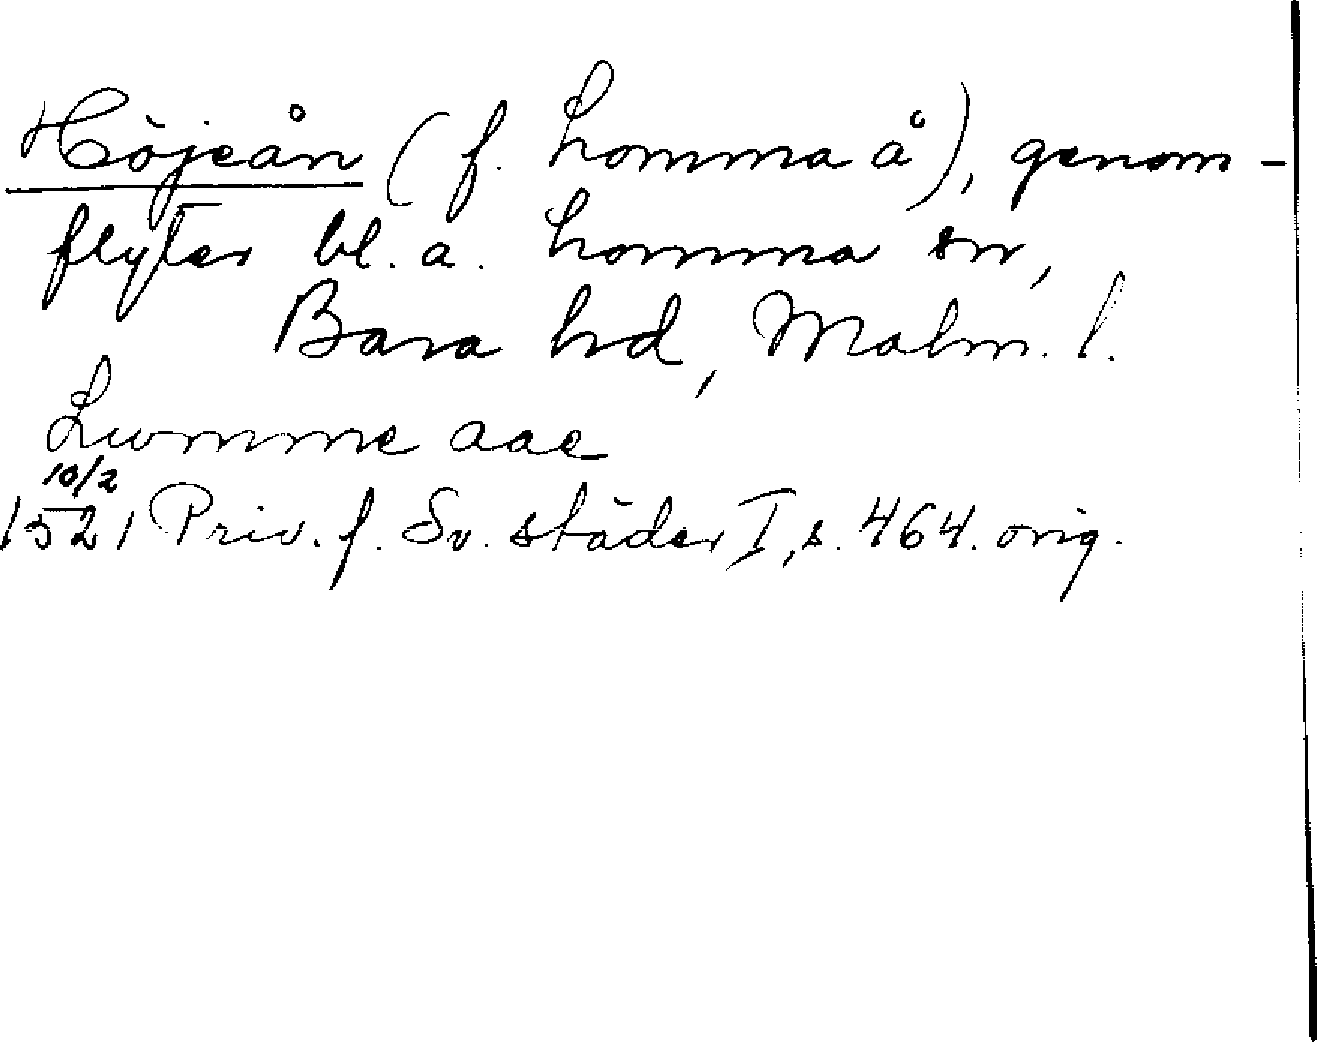 Höjeån (f. Lomma å), genom-
flyter bl. a. Lomma sn,
Bara hd, Malm. l.
Lwmme aae
10/2
1521 Priv. f. Sv. städer I, s. 464. orig.